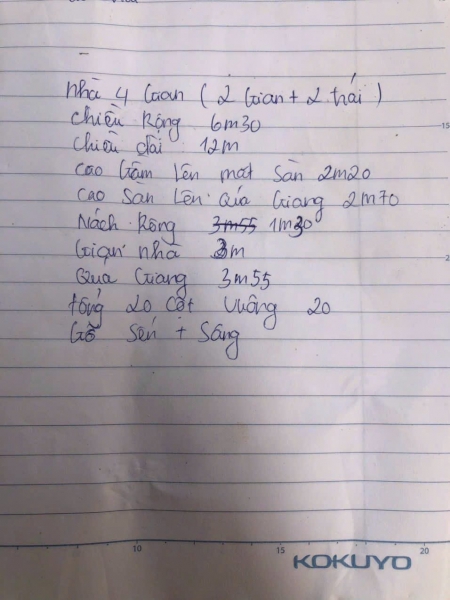 Nhà 4 Gian ( 2 Gian + 2 trái )
Chiều Rộng 6m30
Chiều dài 12m
Cao Gầm lên mặt sàn 2m20
Cao sàn lên Quá Giang 2m70
Nách Rộng 3m55 1m30
Gian nhà 3m
Quá Giang 3m55
tổng 20 cột vuông 20
Gỗ Sến + Săng
15
2
10 15 20
KOKUYO